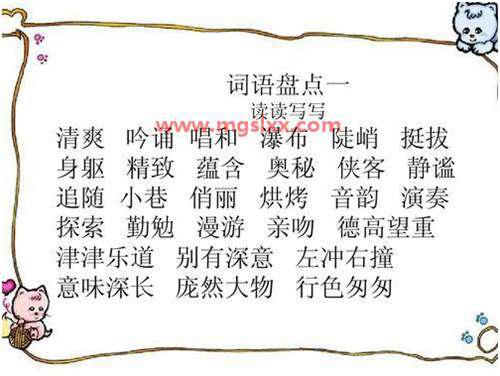 词语盘点一
读读写写
www.mgslxx.com
清爽 吟诵 唱和 瀑布 陡峭 挺拔
身躯 精致 蕴含 奥秘 侠客 静谧
追随 小巷 俏丽 烘烤 音韵 演奏
探索 勤勉 漫游 亲吻 德高望重
津津乐道 别有深意 左冲右撞
意味深长 庞然大物 行色匆匆